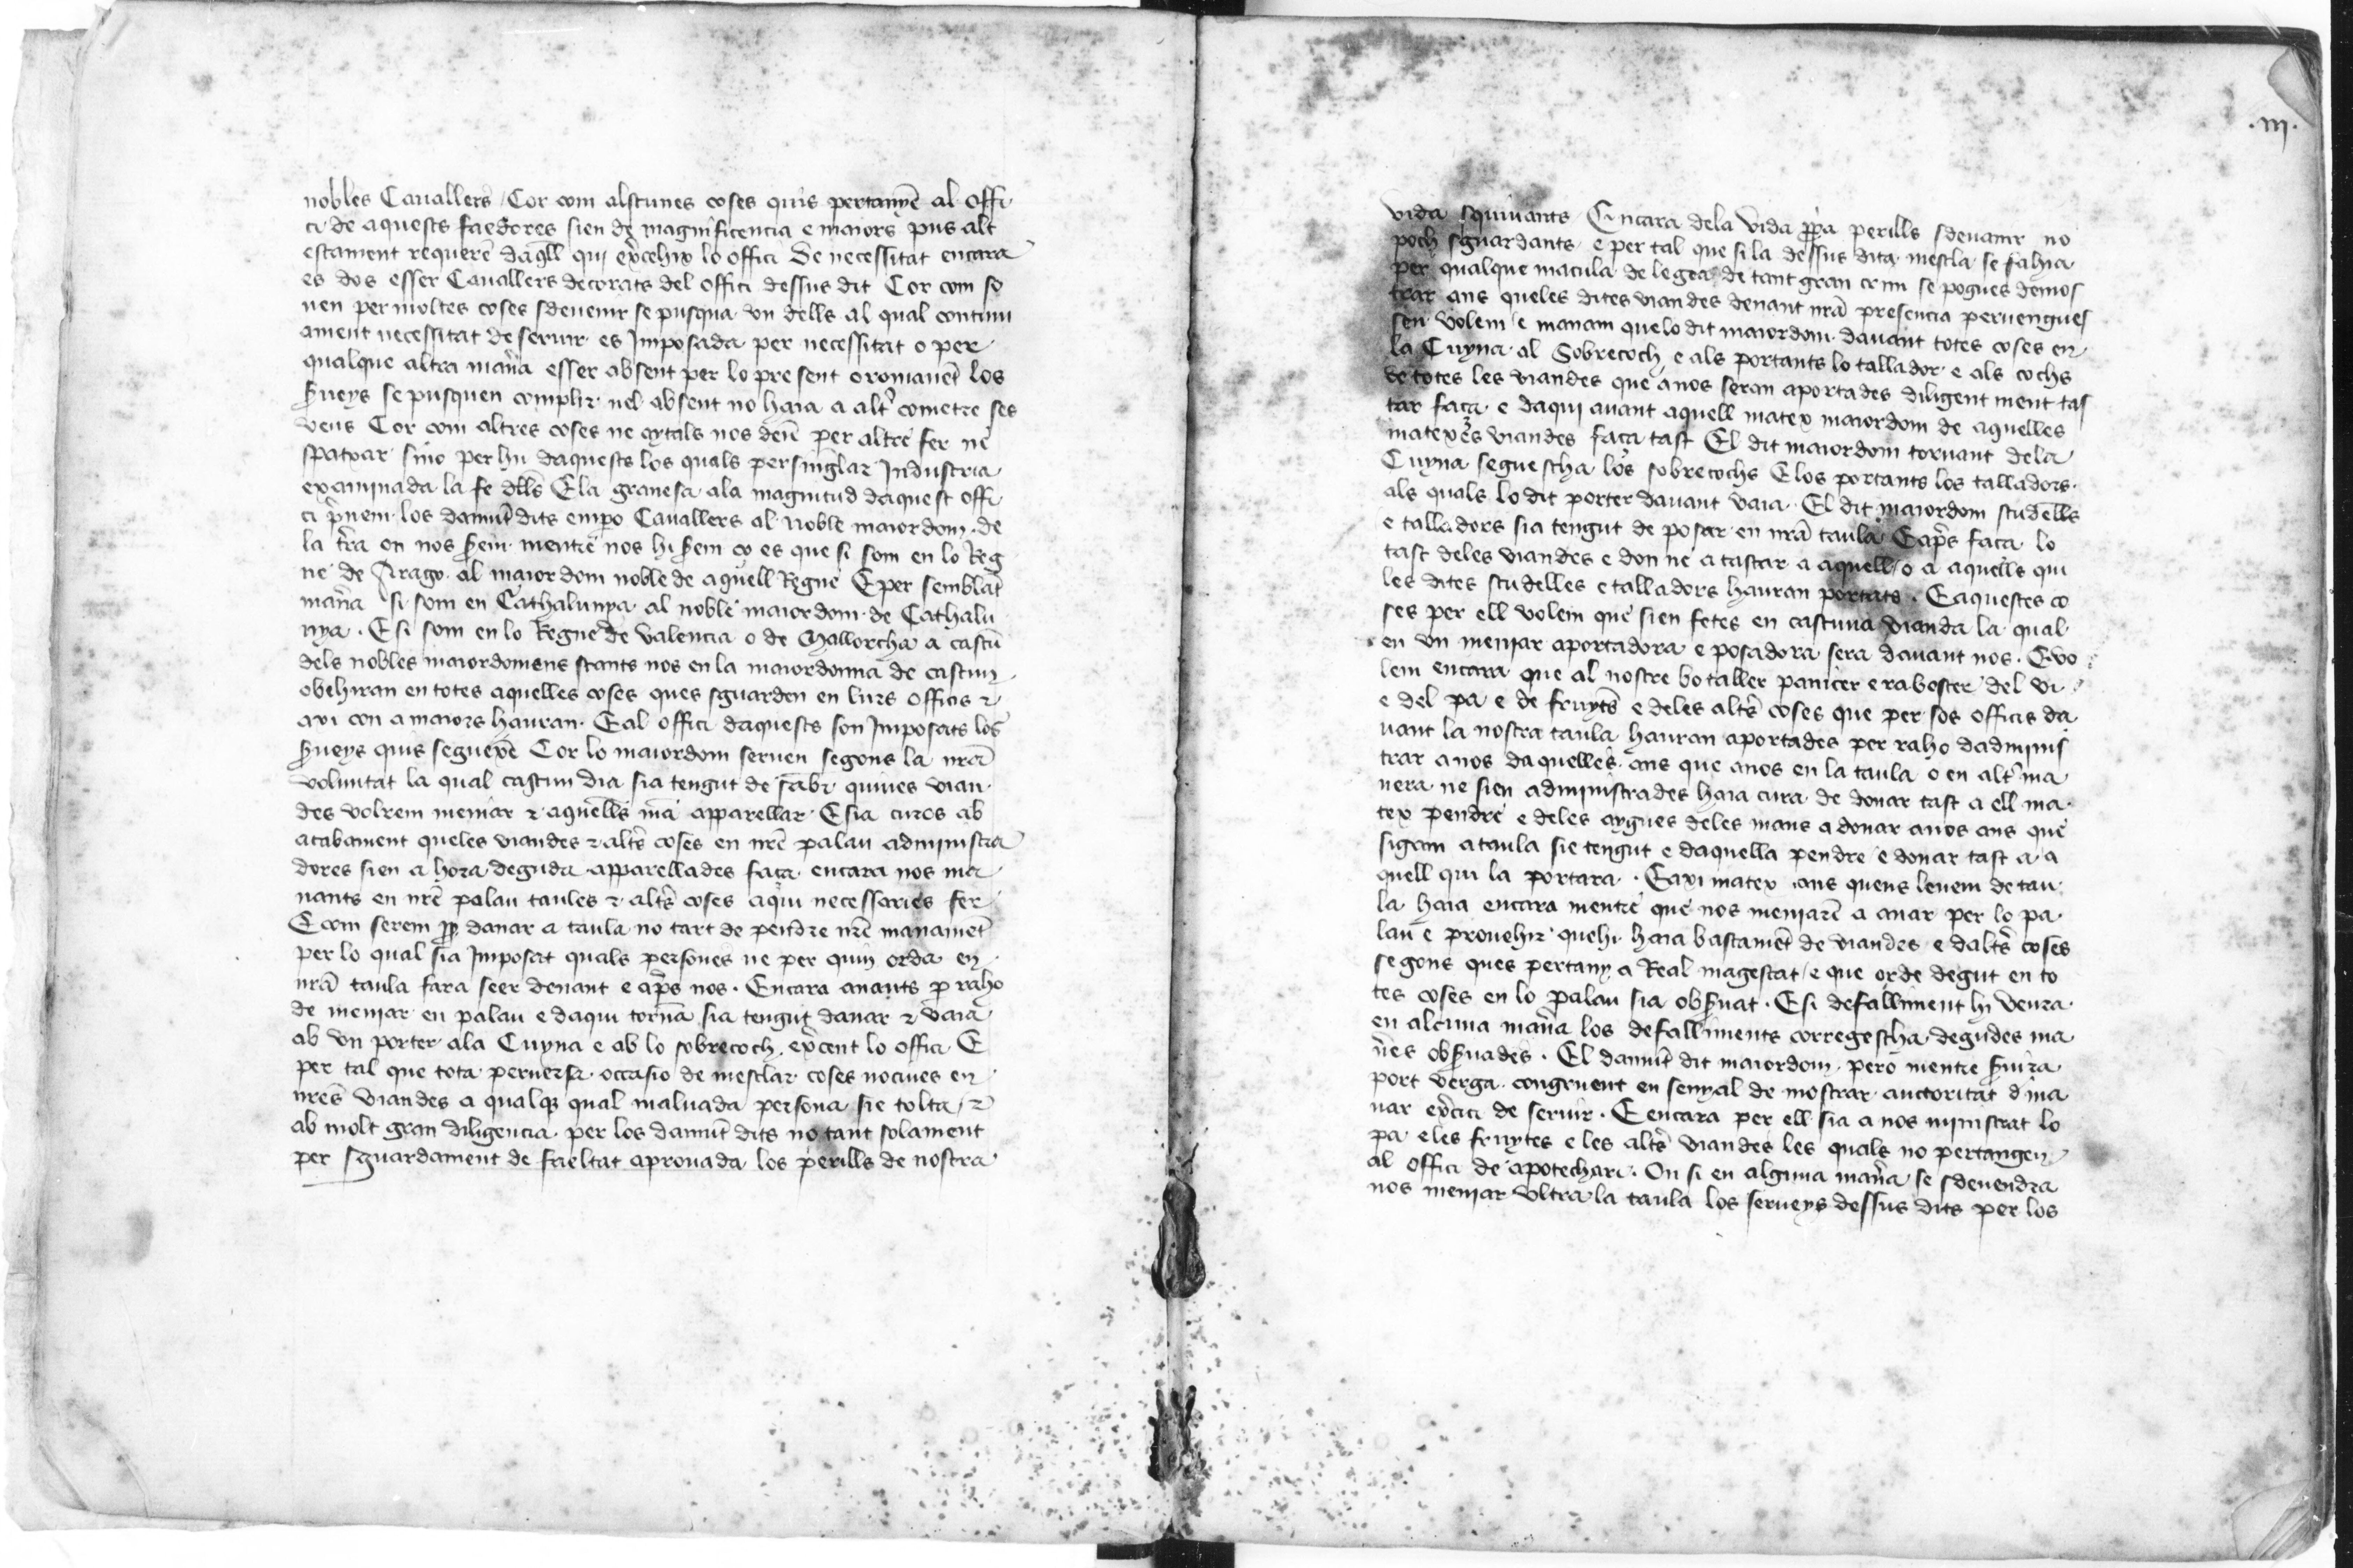 nobles Cauallers / Cor com alscunes coses quis pertanyē al offi
ci de aquests faedores sien de magnificencia e maiors pus alt
estament requerē daq̄ll qui ex̄cehix lo offici De necessitat encara
es dos esser Cauallers decorats del offici dessus dit Cor com so
uen per moltes coses sdeuenir se pusqua vn dells al qual continu
ament necessitat de seruir es Imposada per necessitat o per
qualque altra man̄a esser absent per lo present o romanēt los
s̄ueys se pusquen complir nel absent no haia a alt̄ cometre ses
veus Cor com altres coses ne aytals nos deiē per altre fer ne
spatxar sino per hu daquests los quals per singlar Industria
examinada la fe dlls̄ E la granesa ala magnitud daquest offi
ci p̄nem los damūt dits empo Cauallers al noble maiordom de
la t̄ra on nos s̄em mentre nos hi s̄em ço es que si som en lo Reg
ne de Arago al maiordom noble de aquell Regne E per semblāt
man̄a si som en Cathalunya al noble maiordom de Cathalu
nya . E si som en lo Regne de valencia o de Mallorcha a cascū
dels nobles maiordomens stants nos en la maiordomia de cascun
obehiran en totes aquelles coses ques sguarden en lurs officis ⁊
axi con a maiors hauran . E al offici daquests son Imposats los
s̄ueys quis seguexē Cor lo maiordom seruen segons la nrā
voluntat la qual cascun dia sia tengut de sab̄r quines vian
des volrem meniar ⁊ aquells mā apparellar . E sia curos ab
acabament queles viandes ⁊ alts̄ coses en nrē palau administra
dores sien a hora deguda apparellades faça encara nos ma
nants en nrē palau taules ⁊ alts̄ coses aqui necessaries fer
E com serem ꝓp danar a taula no tart de pendre nrē manamēt
per lo qual sia Imposat quals persones ne per quin orda en
nrā taula fara seer denant e ap̄s nos . Encara anants ꝑ raho
de meniar en palau e daqui tornā sia tengut danar ⁊ vaia
ab vn porter ala Cuyna e ab lo sobrecoch ex̄cent lo offici E
per tal que tota peruersa occasio de mesclar coses nociues en
nrēs viandes a qualqꝫ qual maluada persona sie tolta / ⁊
ab molt gran diligencia per los damūt dits no tant solament
per sguardament de faeltat aprouada los perills de nostra
.iij.
vida squiuants / Encara dela vida ꝓp̄a perills sdeuanir no
poch sguardants / e per tal que si la dessus dita mescla se fahia
per qualque macula de legea de tant gran crim se pogues demos
trar ans queles dites viandes denant nrā presencia peruengues
sen volem e manam quelo dit maiordom dauant totes coses en
la Cuyna al Sobrecoch e als portants lo tallador e als cochs
de totes les viandes que anos seran aportades diligent ment tas
tar faça e daqui auant aquell matex maiordom de aquelles
matexes viandes faça tast El dit maiordom tornant dela
Cuyna seguescha los sobrecochs E los portants los talladors
als quals lo dit porter dauant vaia . El dit maiordom scudells
e talladors sia tengut de posar en nrā taula E ap̄s faça lo
tast deles viandes e don ne a tastar a aquell / o a aquells qui
les dites scudelles e talladors hauran portats . E aquestes co
ses per ell volem que sien fetes en cascuna vianda la qual
en vn meniar aportadora e posadora sera dauant nos . E vo
lem encara que al nostre botaller panicer e raboster del vi
e del pa e de fruyts̄ e deles alts̄ coses que per sos officis da
uant la nostra taula hauran aportades per raho dadminis
trar anos daquelles ans que anos en la taula o en alt̄ ma
nera ne sien administrades haia cura de donar tast a ell ma
tex pendre e deles aygues deles mans a donar anos ans que
sigam a taula sie tengut e daquella pendre e donar tast a a
quell qui la portara . E axi matex ans quens leuem de tau
la haia encara mentre que nos meniarē a anar per lo pa
lau e prouehir quehi haia bastamēt de viandes e dalts̄ coses
segons ques pertany a Real magestat / e que orde degut en to
tes coses en lo palau sia obs̄uat . E si defalliment hi veura
en alcuna man̄a los defalliments corregescha degudes ma
n̄es obs̄uades . El damūt dit maiordom pero mentre s̄uira
port verga congruent en senyal de mostrar auctoritat d̄ ma
nar ex̄cici de seruir . E encara per ell sia a nos ministrat lo
pa e les fruytes e les alts̄ viandes les quals no pertangen
al offici de apotechari . On si en alguna man̄a se sdeuendra
nos meniar vltra la taula los serueys dessus dits per los